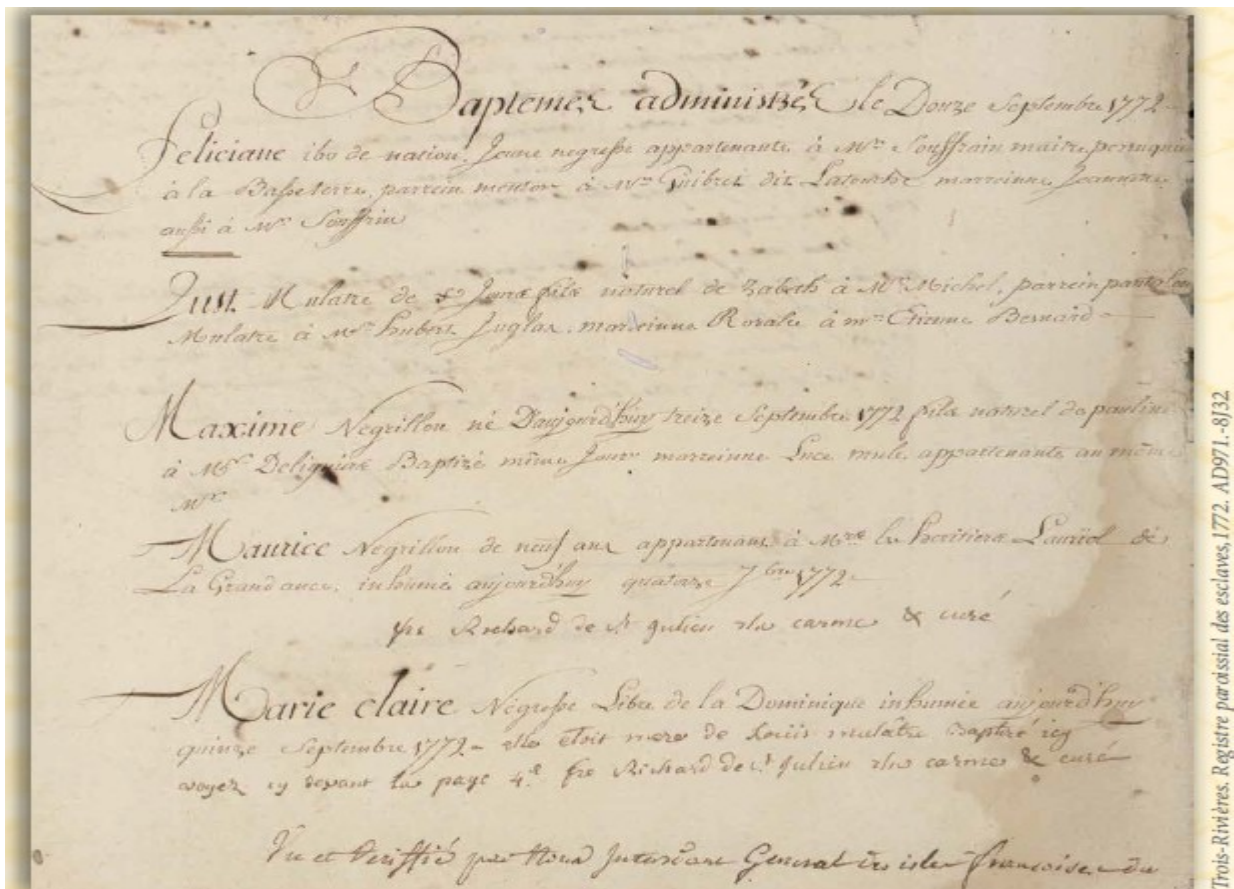 Baptemes administrés le Douze Septembre 1772
Feliciane ibo de nation, Jeune negresse appartenante à Mr. Souffrain maitre perruquier
à la Basseterre, parrein mentor à Mr. Guibret dit Latouche marreinne Jeannette
aussi à Mr. Souffrin
Just Mulatre de Jours fils naturel de Zabeth à Mr. Michel, parrein pantaleon
Mulatre à Mr. hubert Juglas, marreinne Rosalie à mr. Etienne Bernard
Maxime Negrillon né D'aujourd'huy treize Septembre 1772 fils naturel de pauline
à Mr. Deliguiere Baptizé même Jour marreinne Luce mule appartenante au même
Mr.
Maurice Negrillon de neuf ans appartenant à les heritiers Lauriol de
La Grand ance, inhumé aujourd'huy quatorze 7bre 1772
fre Richard de St Julien carme & curé
Marie claire Negresse Libre de la Dominique inhumée aujourd'huy
quinze Septembre 1772 elle étoit mere de Louis mulâtre Baptizé icy
voyez cy devant la page 4e. fre Richard de St Julien carme & curé
Vu et Veriffié par Nous Intendant General des isles francoises du
Trois-Rivières. Registre paroissial des esclaves, 1772. AD971.-8J32